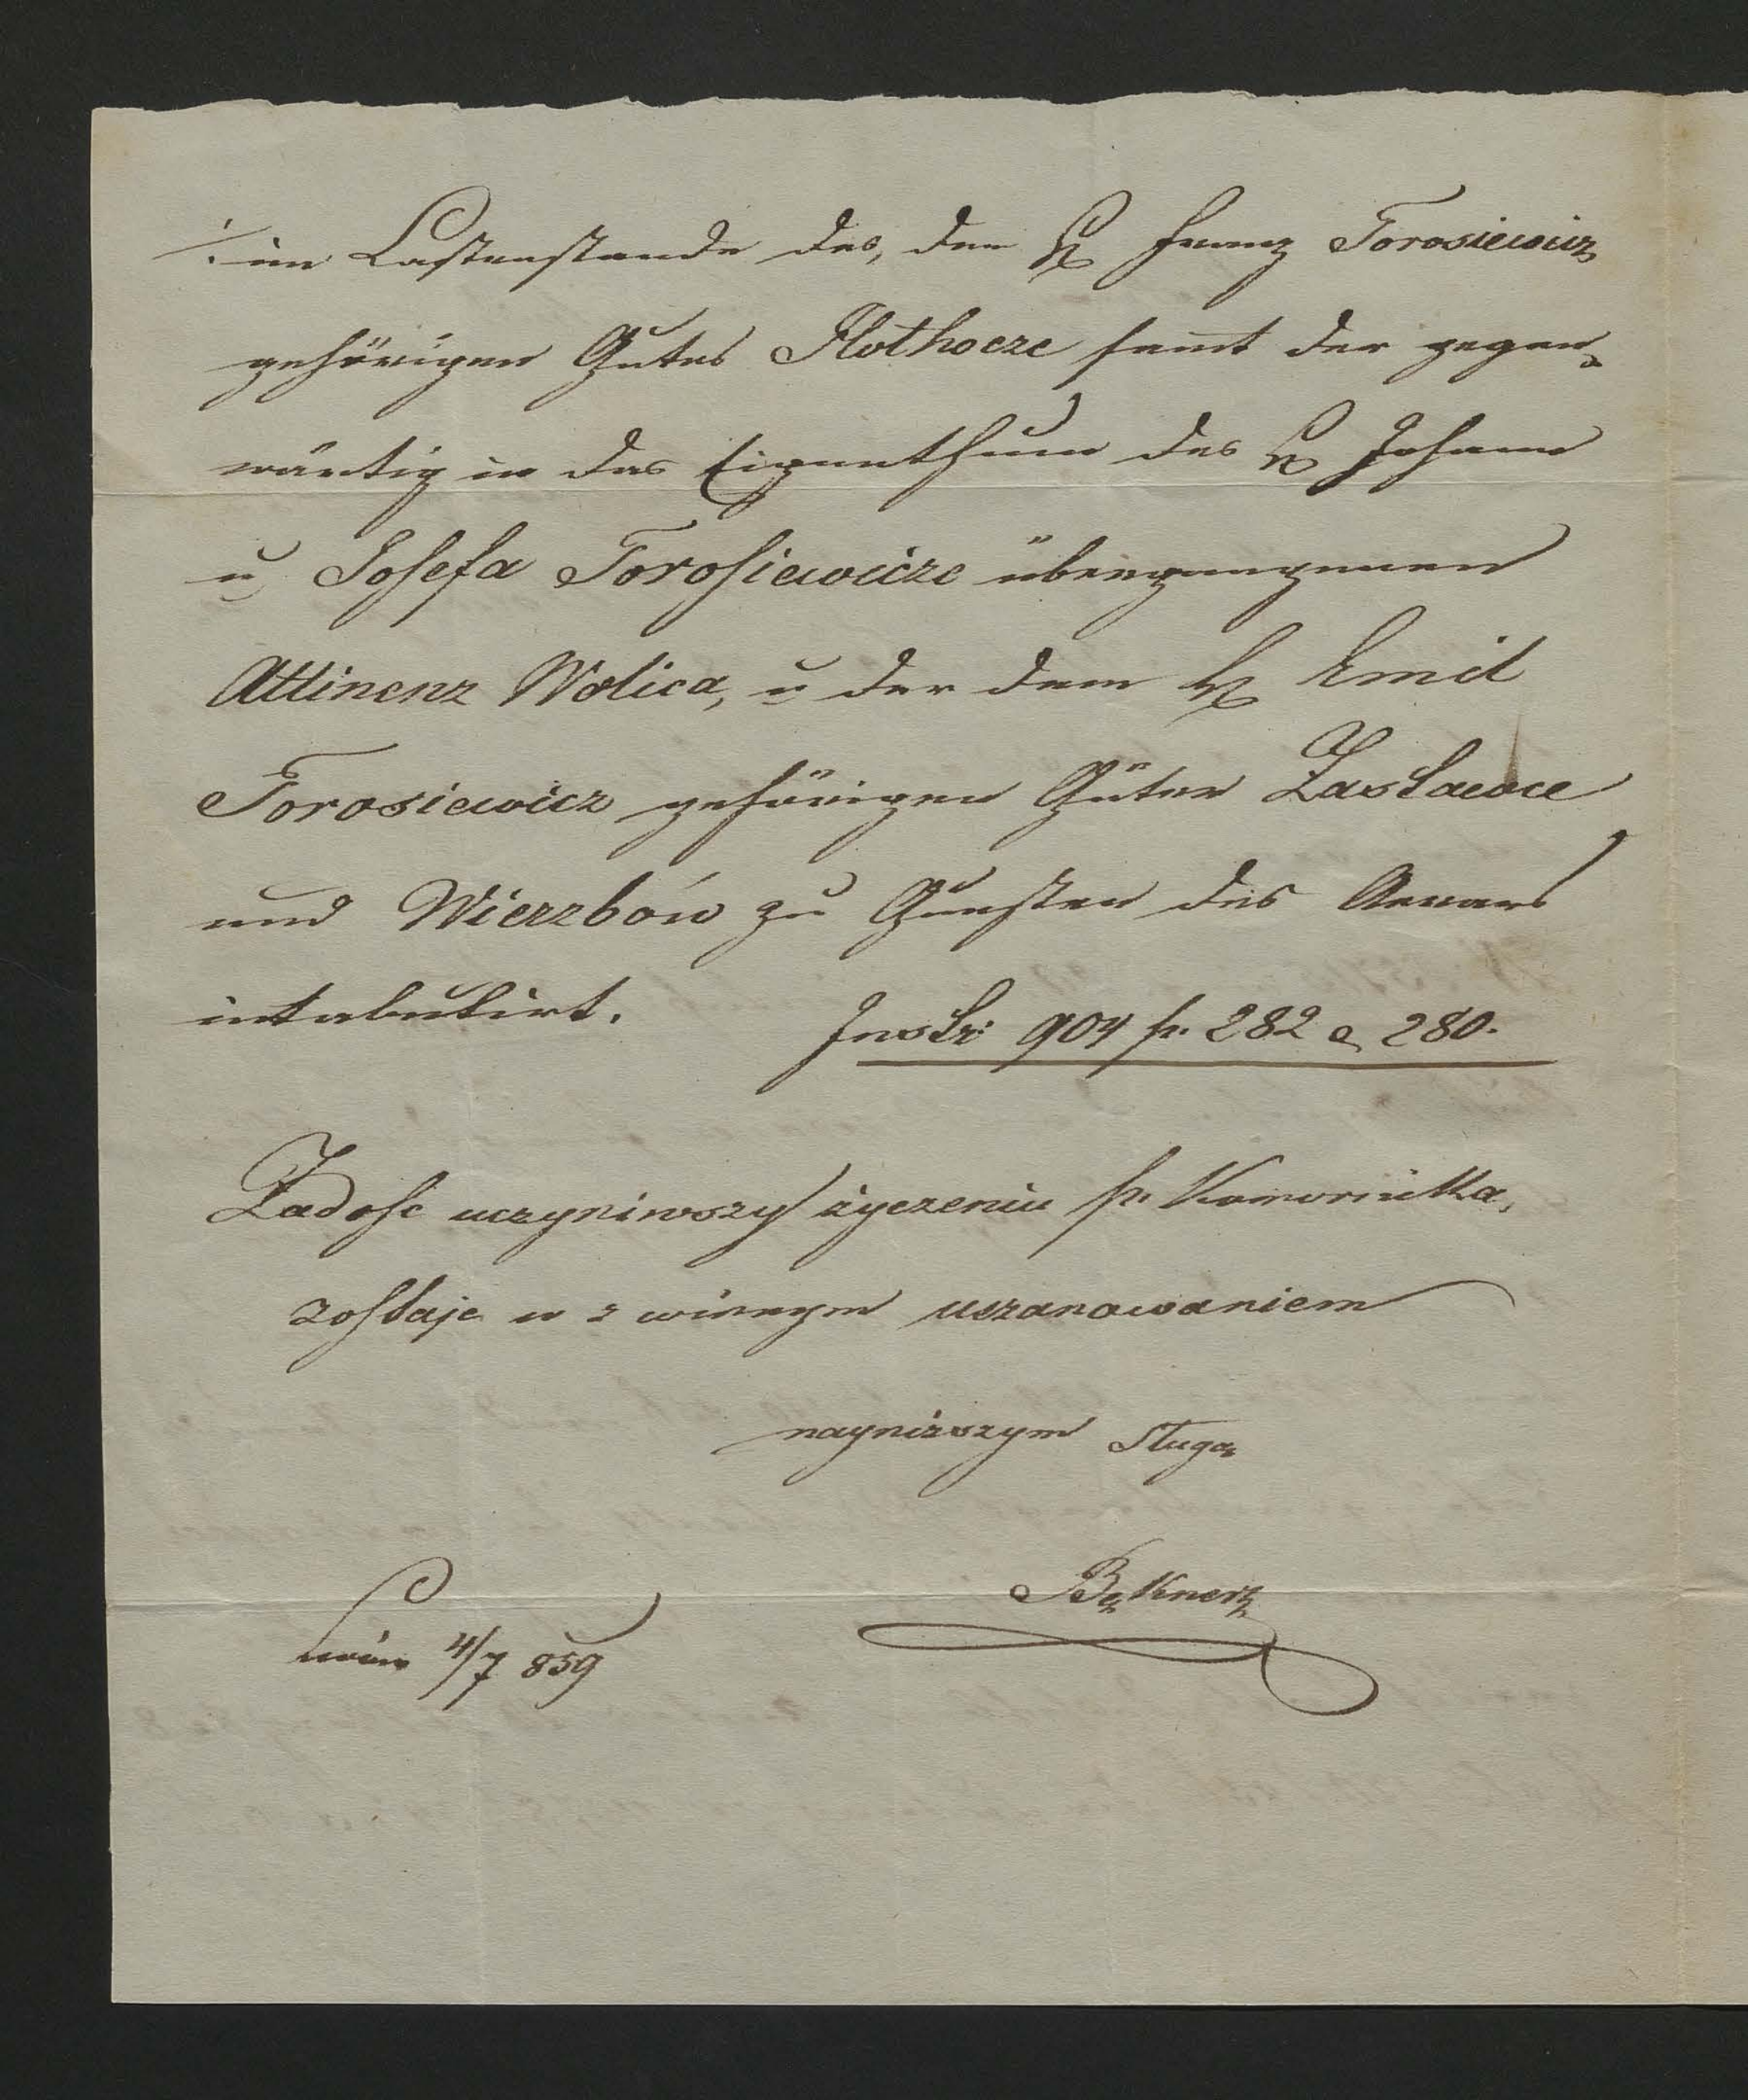 /. im Lastenstande des, dem H Franz Torosiewicz
gehörigen Gutes Płothocze samt der gegen-
wärtig in das Eigenthum des H Johann
u Josefa Torosiewicze übergangenen
Attinenz Wolica, u der dem H Emil
Torosiewicz gehörigen Güter Zasławce
und Wierzbów zu Gunsten des Aerars
intabulirt.
Instr: 904 p. 282 & 280.
Zadość uczyniwszy życzeniu p. Komornika,
zostaję z winnym uszanowaniem
nayniższym sługą
Bękner
Lwów 4/7 859